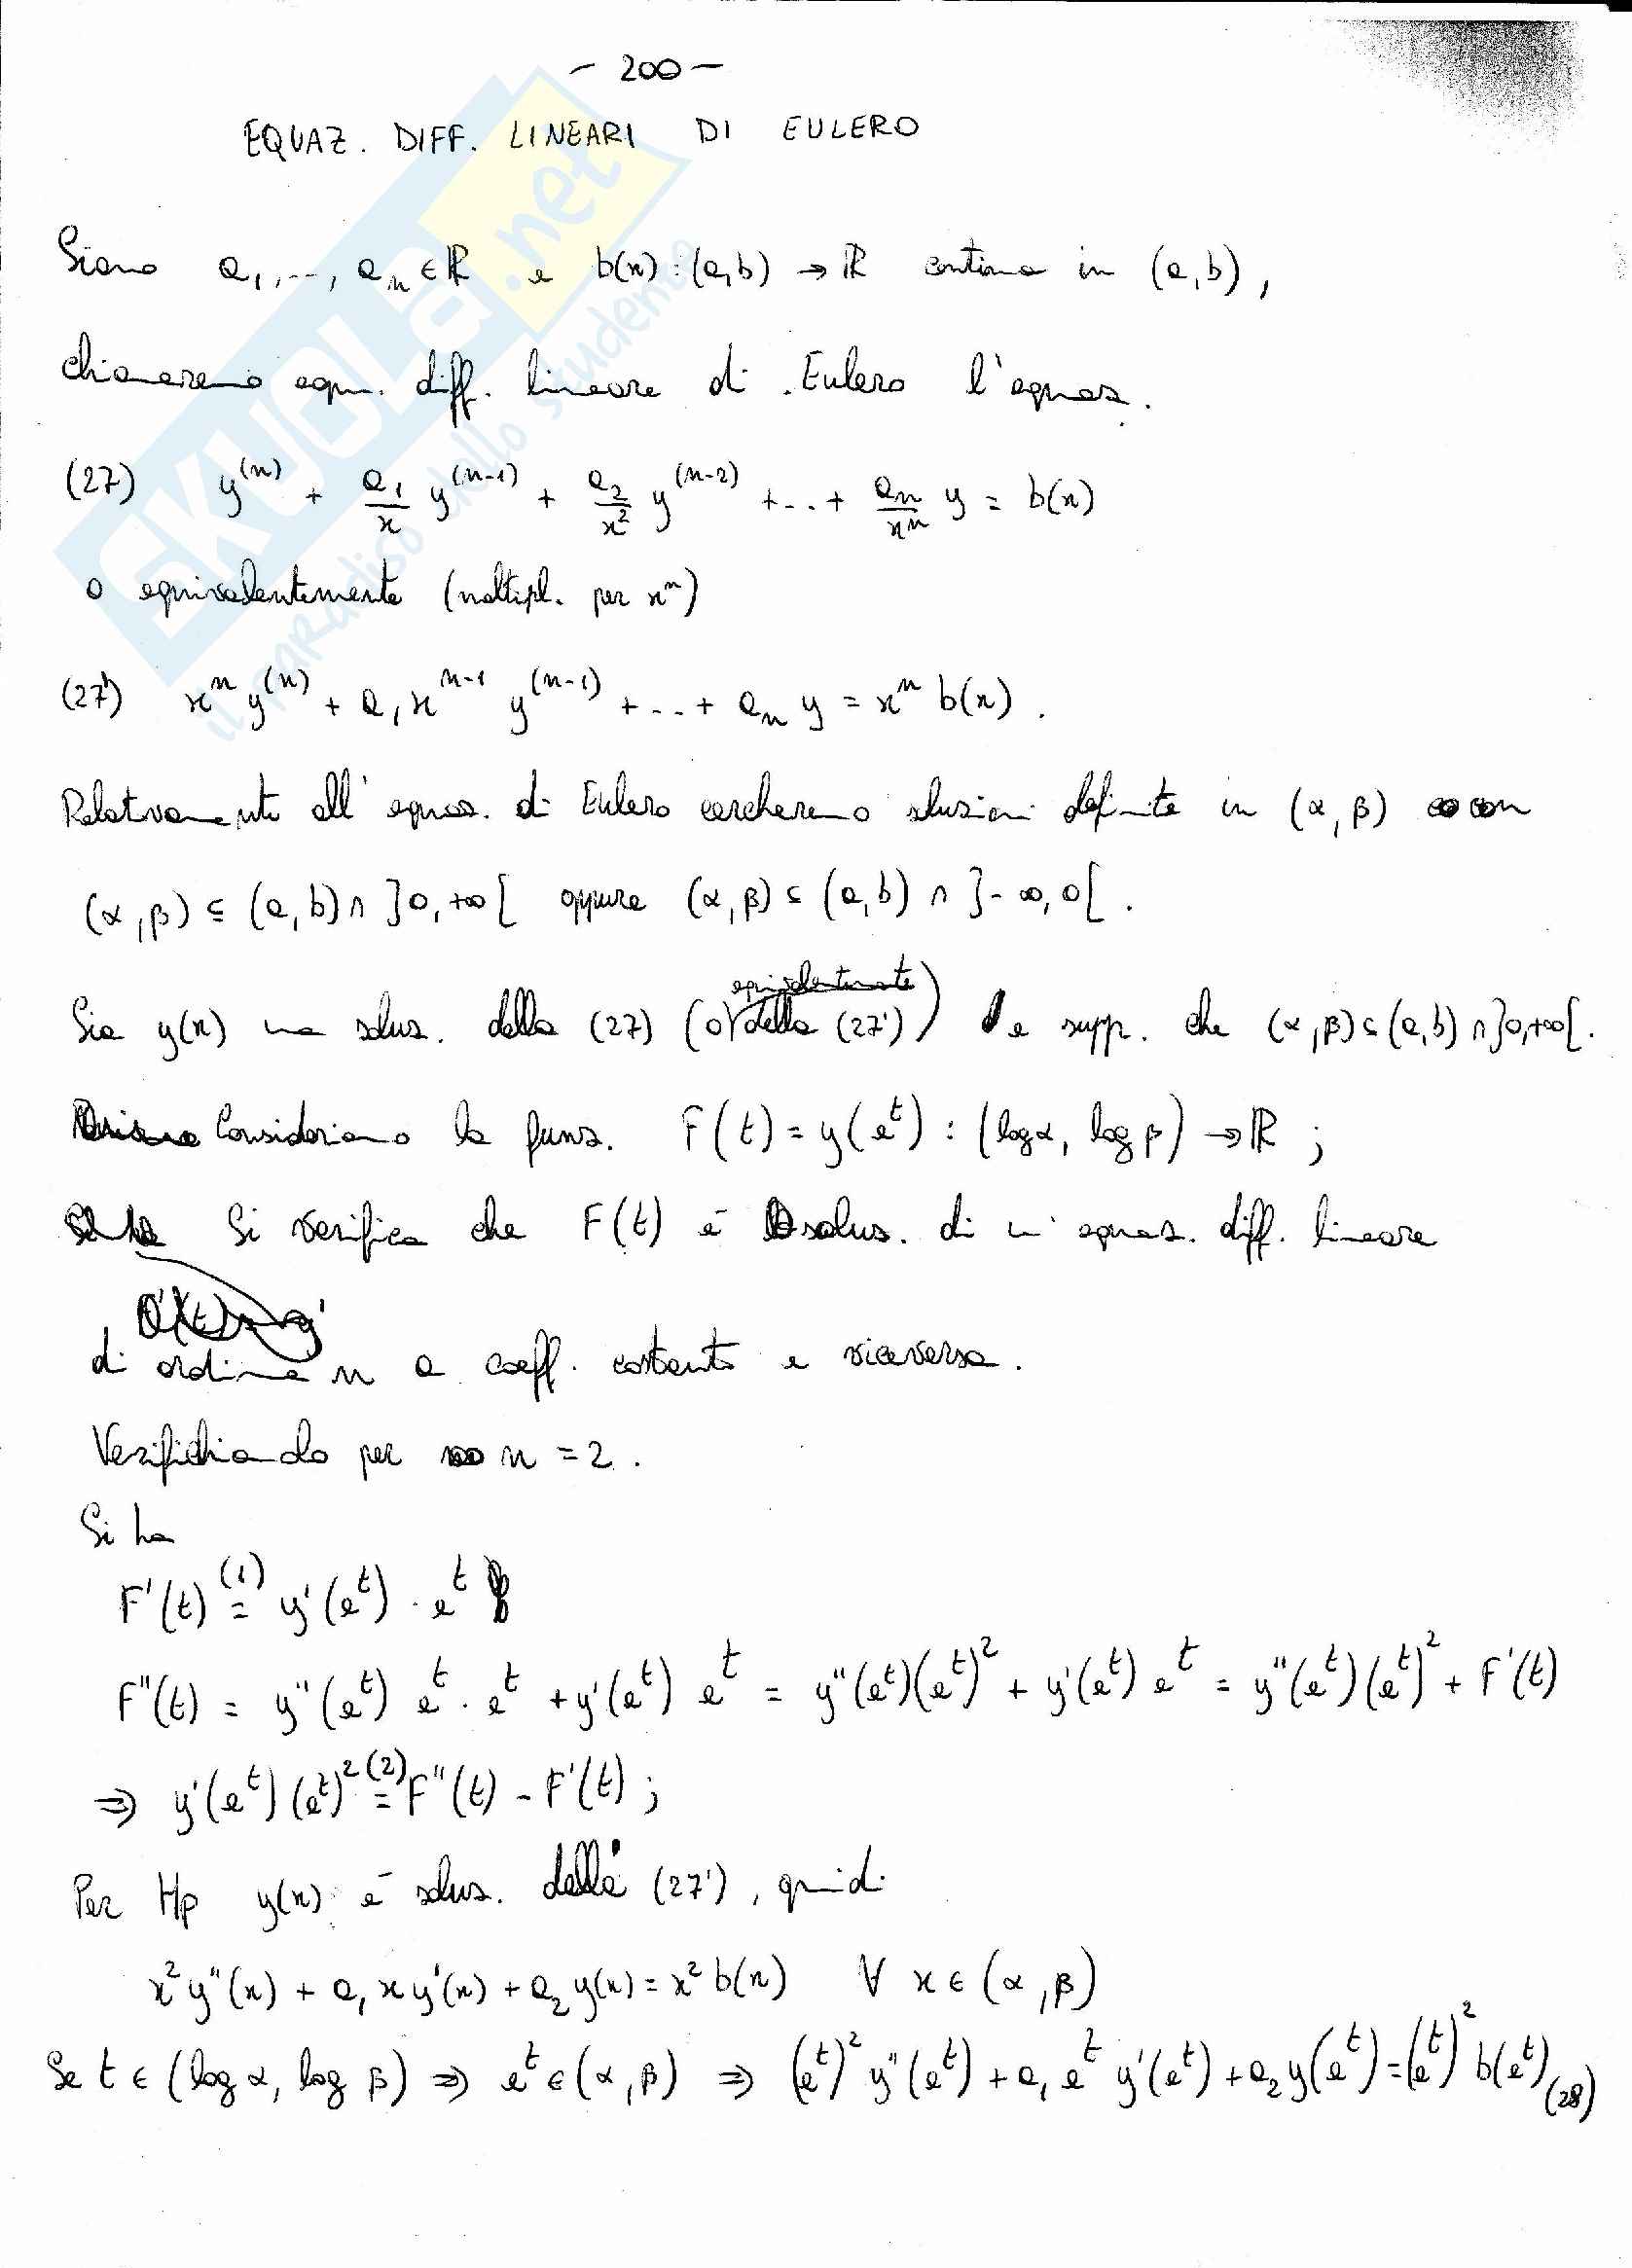 - 200 -
EQUAZ. DIFF. LINEARI DI EULERO
Siano a₁,..., aₙ ∈ ℝ e b(x) : (a,b) → ℝ continua in (a,b),
chiameremo equ. diff. lineare di Eulero l'equaz.
(27) y⁽ⁿ⁾ + a₁/x y⁽ⁿ⁻¹⁾ + a₂/x² y⁽ⁿ⁻²⁾ + ... + aₙ/xⁿ y = b(x)
o equivalentemente (moltipl. per xⁿ)
(27') xⁿ y⁽ⁿ⁾ + a₁xⁿ⁻¹ y⁽ⁿ⁻¹⁾ + ... + aₙ y = xⁿ b(x).
Relativamente all'equaz. di Eulero cercheremo soluzioni definite in (α, β) con
(α, β) ⊆ (a, b) ∩ ]0, +∞[ oppure (α, β) ⊆ (a, b) ∩ ]-∞, 0[.
Sia y(x) una soluz. della (27) (o equivalentemente della (27')) e supp. che (α, β) ⊆ (a, b) ∩ ]0, +∞[.
Consideriamo la funz. F(t) = y(eᵗ) : (log α, log β) → ℝ ;
Si verifica che F(t) è soluz. di un'equaz. diff. lineare
di ordine n a coeff. costanti e viceversa.
Verifichiamolo per n = 2.
Si ha
F'(t) =⁽¹⁾ y'(eᵗ) · eᵗ
F''(t) = y''(eᵗ) eᵗ · eᵗ + y'(eᵗ) eᵗ = y''(eᵗ)(eᵗ)² + y'(eᵗ) eᵗ = y''(eᵗ)(eᵗ)² + F'(t)
⇒ y'(eᵗ)(eᵗ)² =⁽²⁾ F''(t) - F'(t) ;
Per Hp y(x) è soluz. della (27'), quindi
x² y''(x) + a₁ x y'(x) + a₂ y(x) = x² b(x) ∀ x ∈ (α, β)
Se t ∈ (log α, log β) ⇒ eᵗ ∈ (α, β) ⇒ (eᵗ)² y''(eᵗ) + a₁ eᵗ y'(eᵗ) + a₂ y(eᵗ) = (eᵗ)² b(eᵗ) (28)
SKUOLA.net
il paradiso dello studente